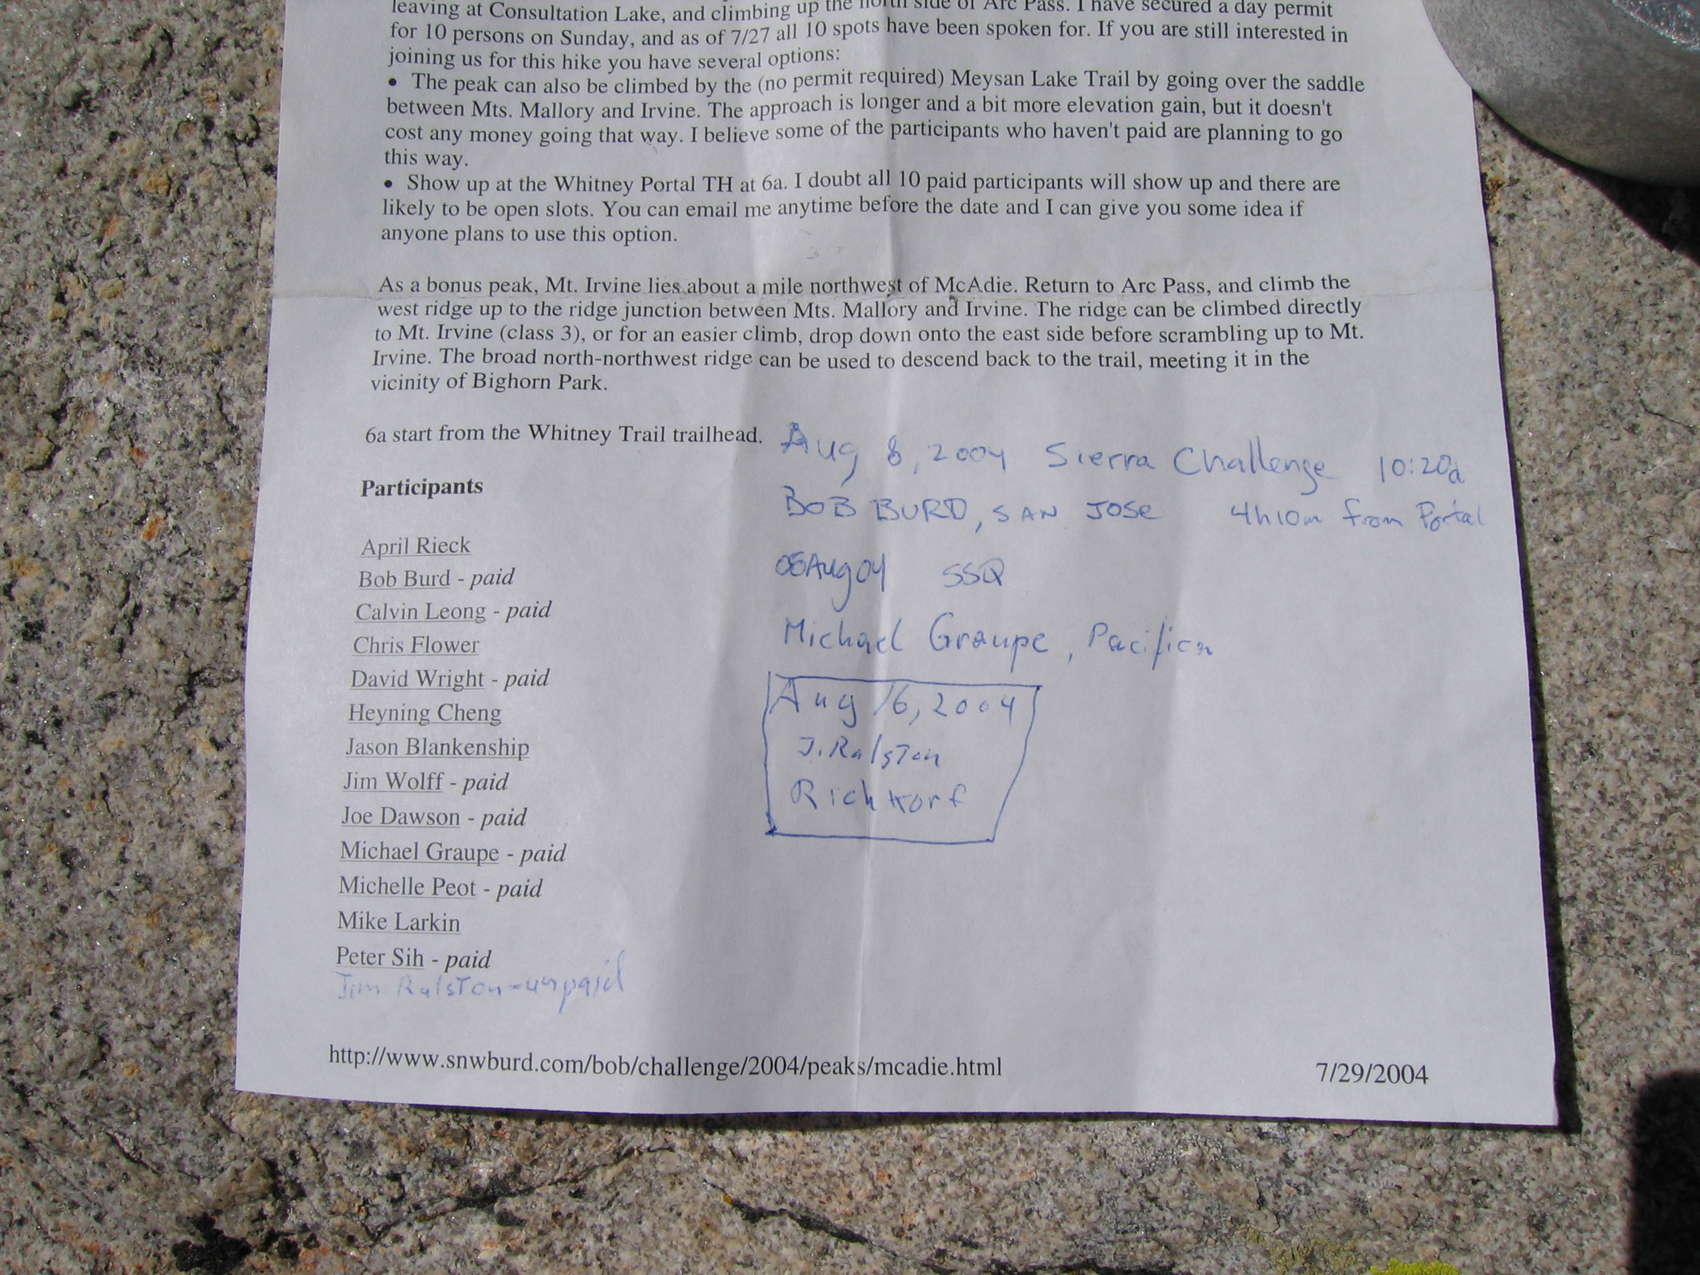 leaving at Consultation Lake, and climbing up the north side of Arc Pass. I have secured a day permit
for 10 persons on Sunday, and as of 7/27 all 10 spots have been spoken for. If you are still interested in
joining us for this hike you have several options:
• The peak can also be climbed by the (no permit required) Meysan Lake Trail by going over the saddle
between Mts. Mallory and Irvine. The approach is longer and a bit more elevation gain, but it doesn't
cost any money going that way. I believe some of the participants who haven't paid are planning to go
this way.
• Show up at the Whitney Portal TH at 6a. I doubt all 10 paid participants will show up and there are
likely to be open slots. You can email me anytime before the date and I can give you some idea if
anyone plans to use this option.
As a bonus peak, Mt. Irvine lies about a mile northwest of McAdie. Return to Arc Pass, and climb the
west ridge up to the ridge junction between Mts. Mallory and Irvine. The ridge can be climbed directly
to Mt. Irvine (class 3), or for an easier climb, drop down onto the east side before scrambling up to Mt.
Irvine. The broad north-northwest ridge can be used to descend back to the trail, meeting it in the
vicinity of Bighorn Park.
6a start from the Whitney Trail trailhead.
Aug 8, 2004 Sierra Challenge 10:20a
BOB BURD, SAN JOSE 4h10m from Portal
08Aug04 SSQ
Michael Graupe, Pacifica
Aug 16, 2004
J. Ralston
Rich Korf
Participants
April Rieck
Bob Burd - paid
Calvin Leong - paid
Chris Flower
David Wright - paid
Heyning Cheng
Jason Blankenship
Jim Wolff - paid
Joe Dawson - paid
Michael Graupe - paid
Michelle Peot - paid
Mike Larkin
Peter Sih - paid
Jim Ralston - unpaid
http://www.snwburd.com/bob/challenge/2004/peaks/mcadie.html
7/29/2004